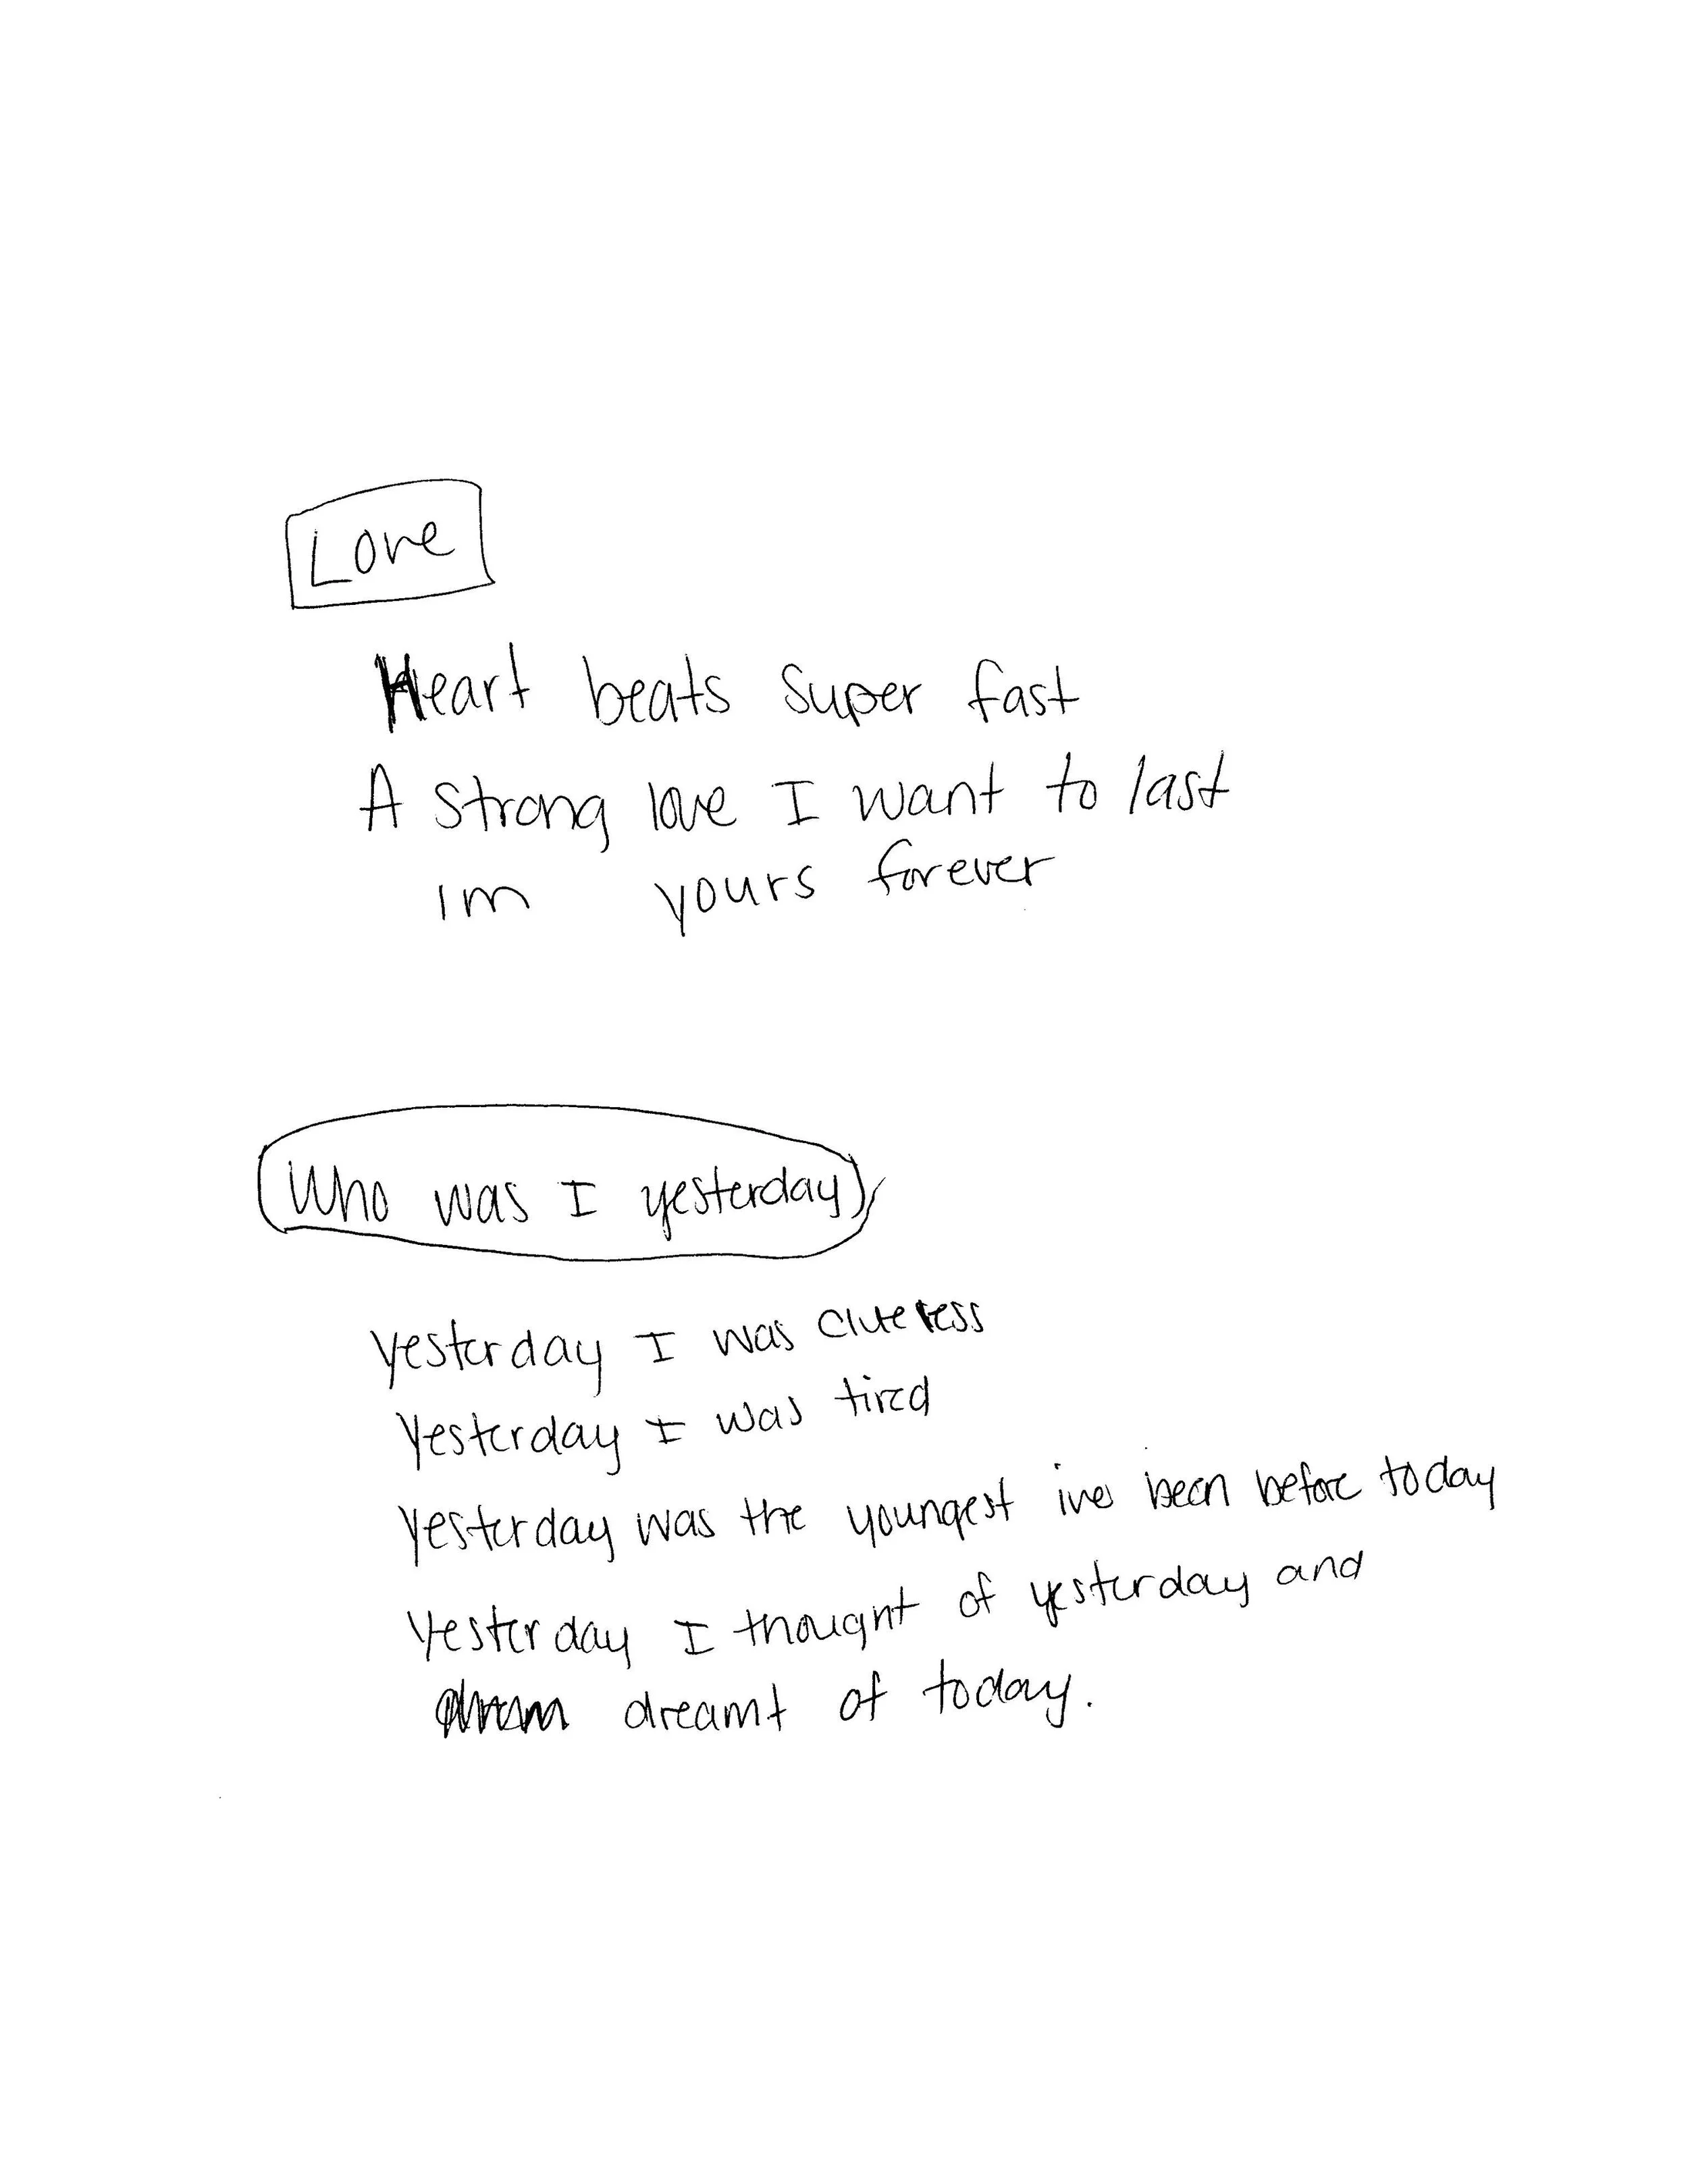 Love
Heart beats super fast
A strong love I want to last
Im yours forever
Who was I yesterday
Yesterday I was clueless
Yesterday I was tired
Yesterday was the youngest ive been before today
Yesterday I thought of yesterday and
dreamt of today.